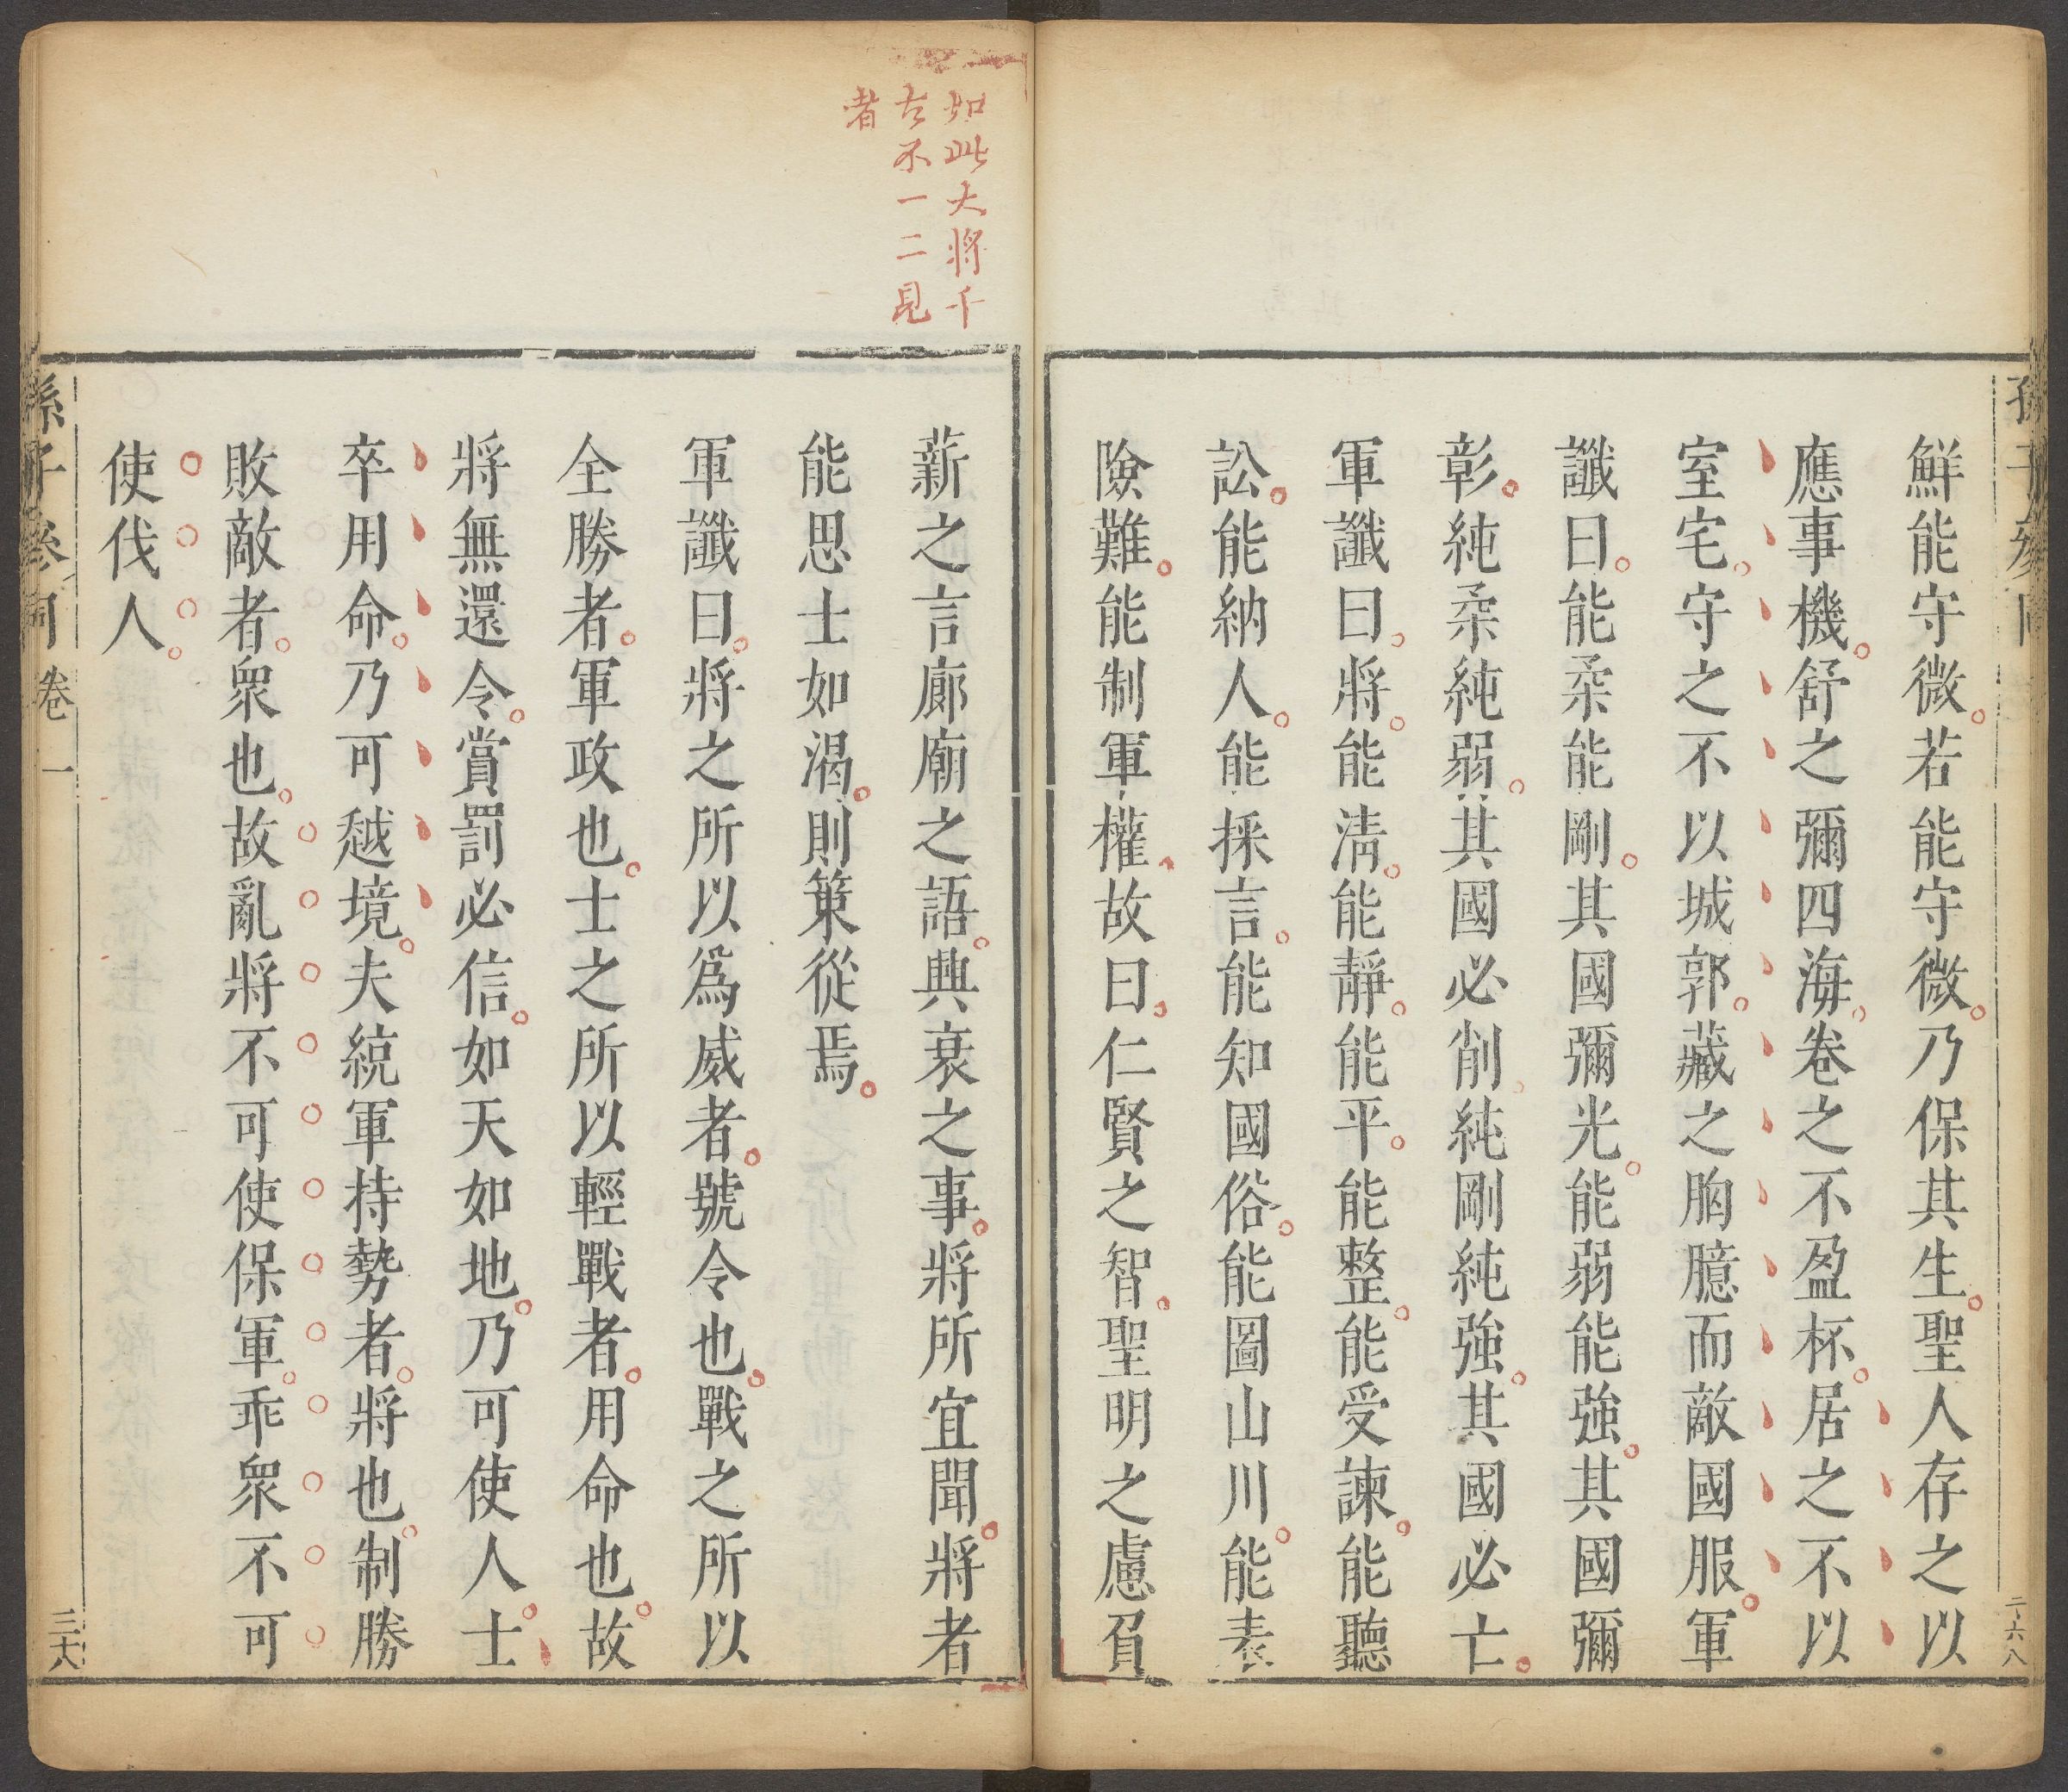 鮮能守微。若能守微。乃保其生。聖人存之以
應事機。舒之彌四海。卷之不盈杯。居之不以
室宅。守之不以城郭。藏之胸臆而敵國服。軍
讖曰。能柔能剛。其國彌光。能弱能強。其國彌
彰。純柔純弱。其國必削。純剛純強。其國必亡。
軍讖曰。將。能淸。能靜。能平。能整。能受諫。能聽
訟。能納人。能採言。能知國俗。能圖山川。能表
險難。能制軍權。故曰。仁賢之智。聖明之慮。負
二六八
如此大將千
古不一二見
者
薪之言。廊廟之語。興衰之事。將所宜聞。將者
能思士如渴。則策從焉。
軍讖曰。將之所以爲威者。號令也。戰之所以
全勝者。軍政也。士之所以輕戰者。用命也。故
將無還令。賞罰必信。如天如地。乃可使人。士
卒用命。乃可越境。夫統軍持勢者。將也。制勝
敗敵者。眾也。故亂將不可使保軍。乖眾不可
使伐人。
孫子參同 卷一